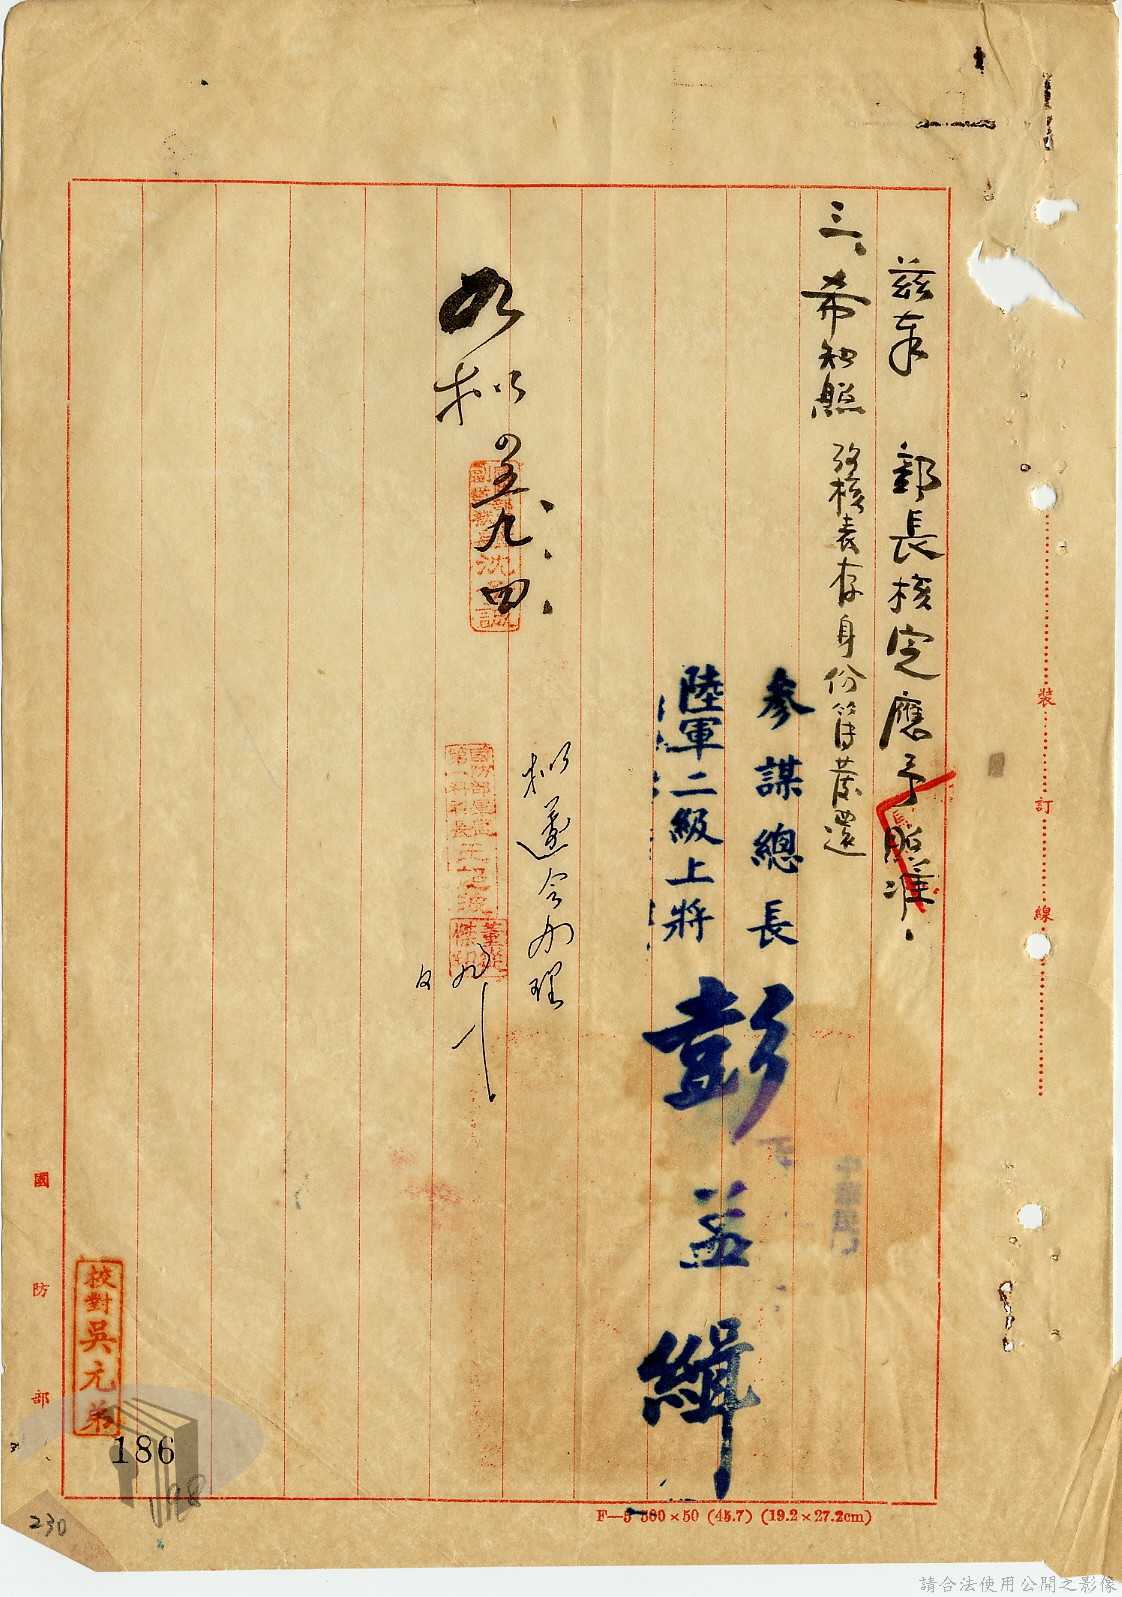 茲奉　部長核定應予照准.
三、希知照 後核表存身份簿發還
參謀總長
陸軍二級上將
彭孟緝
擬遵令办理
如擬
九、四.
裝訂線
國防部
校對吳元弟
186
198
230
F—5 500×50 (45.7) (19.2×27.2cm)
請合法使用公開之影像